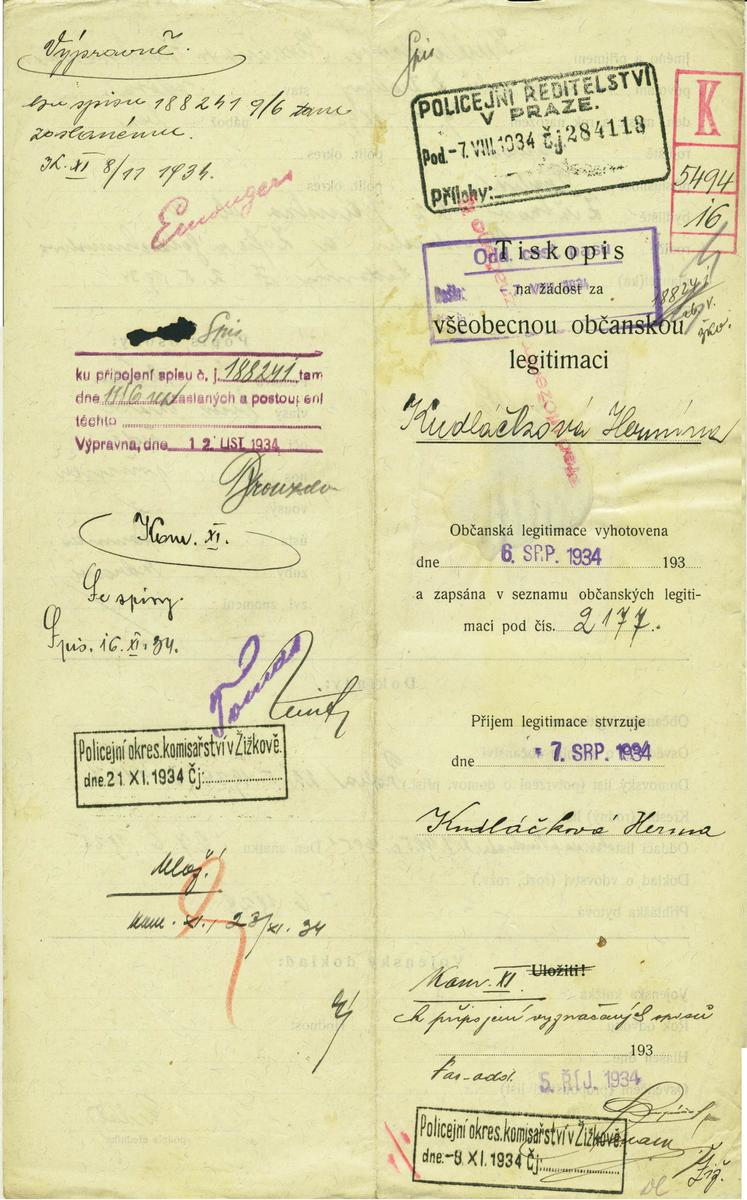 Výpravně.
ku spisu 188241 9/6 tam
zaslanému.
K. XI 8/11 1934.
Spis
ku připojení spisu č. j. 188241 tam
dne 11/6 zaslaných a postoupení
těchto
Výpravna, dne 12 LIST 1934
Kom. XI.
Se spisy.
Spis. 16. XI. 34.
Policejní okres. komisařství v Žižkově.
dne 21 XI. 1934 Čj:
Ulož!
Kom. XI. 23/XI. 34
Spis
POLICEJNÍ ŘEDITELSTVÍ
V PRAZE.
Pod. -7. VIII. 1934 Čj. 284118
Přílohy:
K
5494
16
Odd. cest. pasů
Tiskopis
na žádost za
188241
všeobecnou občanskou
legitimaci
Kudláčková Hermína
Občanská legitimace vyhotovena
dne 6. SRP. 1934 193
a zapsána v seznamu občanských legiti-
mací pod čís. 2177.
Příjem legitimace stvrzuje
dne 7. SRP. 1934
Kudláčková Herma
Uložiti!
Kom. XI.
k připojení vyznačených spisů
193
Pas. odd. 5. ŘÍJ. 1934
Policejní okres. komisařství v Žižkově.
dne -8 XI. 1934 Čj:
Žiž.